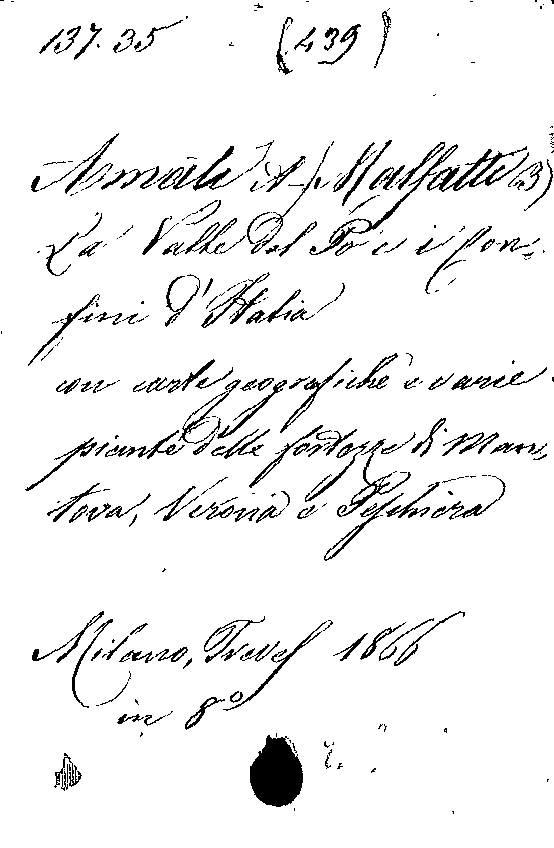 137.35 (439)
Amati A - Malfatti B)
La Valle del Po e i Con-
fini d'Italia
con carte geografiche e varie
piante delle fortezze di Man-
tova, Verona e Peschiera
Milano, Treves 1866
in 8º